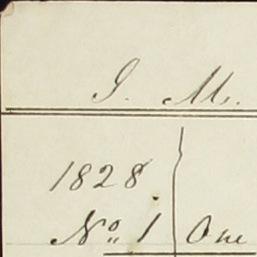 J. M.
1828
No 1 One